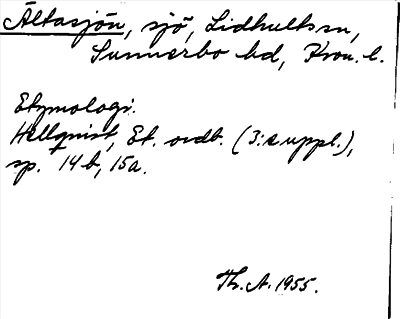 Ältasjön, sjö, Lidhults sn,
Sunnerbo hd, Kron. l.
Etymologi.
Hellquist, Et. ordb. (3:e suppl.),
sp. 14b, 15a.
Th. A. 1955.